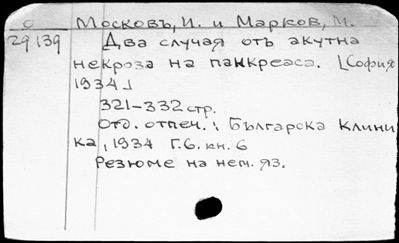 О Московъ, И. и Марков, М.
29139 Два случая отъ акутна
некроза на панкреаса. [София
1934]
321-332 стр.
Отд. отпеч.: Българска клини
ка, 1934 Г.6. кн. 6
Резюме на нем. яз.